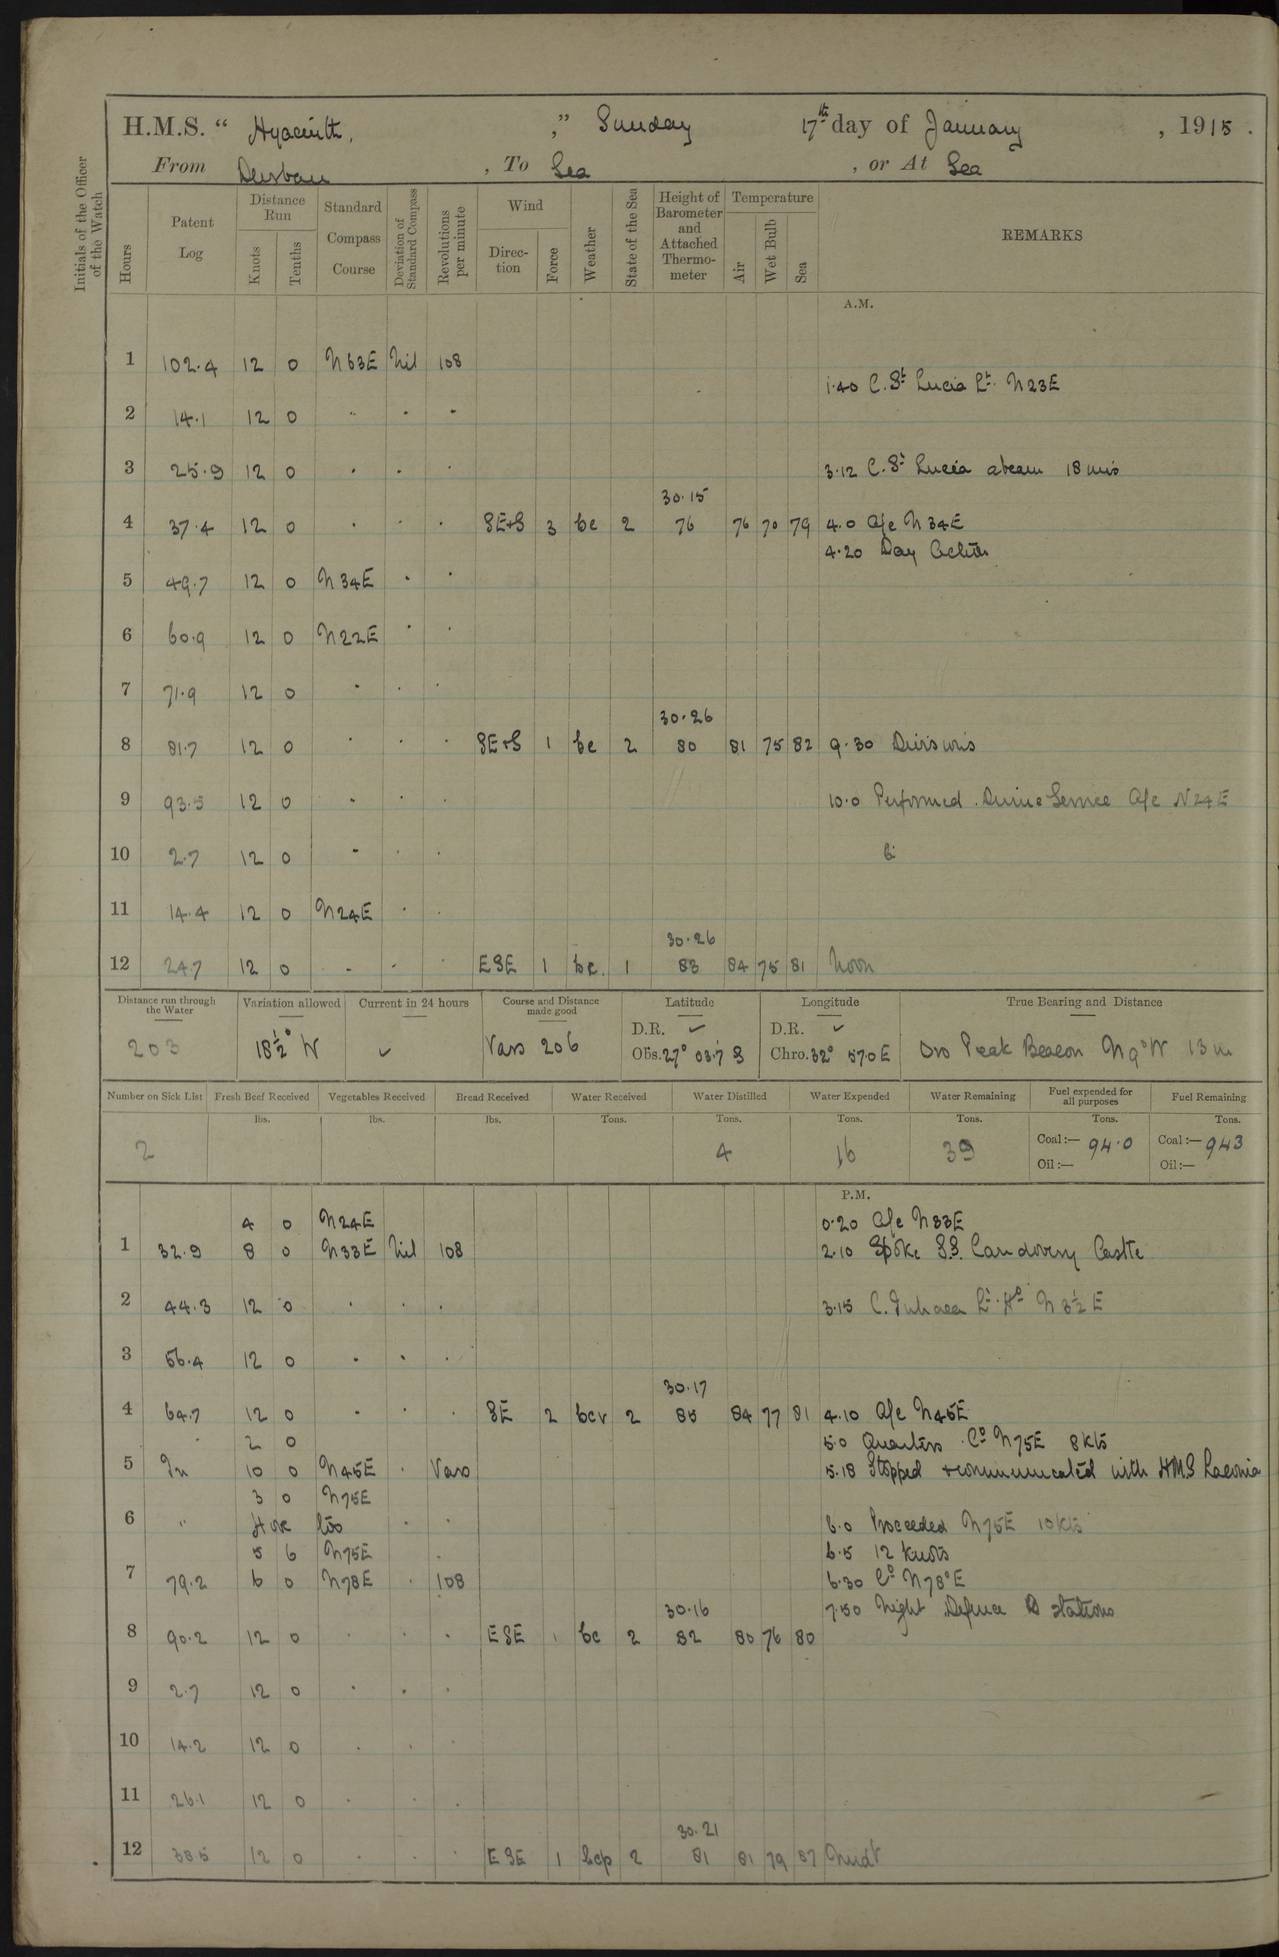 H.M.S. “ Hyacinth, ,” Sunday 17th day of January , 1915 .
From Durban , To Sea , or At Sea
Initials of the Officer of the Watch
Hours
Patent Log
Distance Run
Knots
Tenths
Standard Compass Course
Deviation of Standard Compass
Revolutions per minute
Wind
Direction
Force
Weather
State of the Sea
Height of Barometer and Attached Thermometer
Temperature
Air
Wet Bulb
Sea
REMARKS
A.M.
1 102.4 12 0 N63E Nil 108
1.40 C. St Lucia Lt. N23E
2 14.1 12 0 " " "
3 25.9 12 0 " " " 3.12 C. St Lucia abeam 18 mis
30.15
4 37.4 12 0 " " " SE+S 3 bc 2 76 76 70 79 4.0 a/c N34E
4.20 Day Action
5 49.7 12 0 N34E " "
6 60.9 12 0 N22E " "
7 71.9 12 0 " " "
30.26
8 81.7 12 0 " " " SE+S 1 bc 2 80 81 75 82 9.30 Divisions
9 93.5 12 0 " " " 10.0 Performed Divine Service a/c N24E
10 2.7 12 0 " " "
11 14.4 12 0 N24E " "
30.26
12 24.7 12 0 " " " ESE 1 bc. 1 83 84 75 81 Noon
Distance run through the Water
Variation allowed
Current in 24 hours
Course and Distance made good
Latitude
Longitude
True Bearing and Distance
D.R. ✓ D.R. ✓
203 18½° W ✓ Vars 206 Obs. 27° 03.7 S Chro. 32° 57.0 E Oro Peak Beacon N9°W 13m
Number on Sick List
Fresh Beef Received
Vegetables Received
Bread Received
Water Received
Water Distilled
Water Expended
Water Remaining
Fuel expended for all purposes
Fuel Remaining
lbs. lbs. lbs. Tons. Tons. Tons. Tons. Tons. Tons.
2 4 16 39 Coal :— 94.0 Coal :— 943
Oil :— Oil :—
P.M.
4 0 N24E 0.20 a/c N33E
1 32.9 8 0 N33E Nil 108 2.10 Spoke S.S. Landovery Castle
2 44.3 12 0 " " " 3.15 C. Inhaca Lt. Ho N3½E
3 56.4 12 0 " " "
30.17
4 64.7 12 0 " " " SE 2 bcv 2 85 84 77 81 4.10 a/c N45E
2 0 5.0 Quarters Co N75E 8 Kts
5 In 10 0 N45E " Vars 5.18 Stopped + communicated with HMS Laconia
3 0 N75E
6 " Hove too " " 6.0 Proceeded N75E 10 Kts
5 6 N75E " 6.5 12 knots
7 79.2 6 0 N78E " 108 6.30 Co N78°E
30.16 7.50 Night Defence stations
8 90.2 12 0 " " " ESE 1 bc 2 82 80 76 80
9 2.7 12 0 " " "
10 14.2 12 0 " " "
11 26.1 12 0 " " "
30.21
12 38.5 12 0 " " " ESE 1 bcp 2 81 81 79 Midt